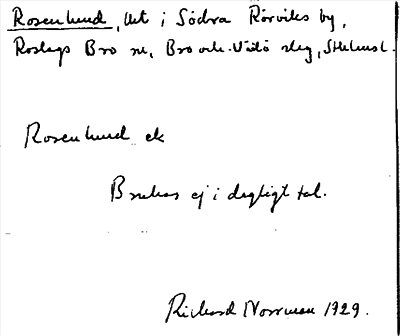 Rosenlund, lht i Södra Rörviks by,
Roslags Bro sn, Bro och Vätö slg, Sthlmsl.
Rosenlund ek
Brukas ej i dagligt tal.
Rickard Norrman 1929.